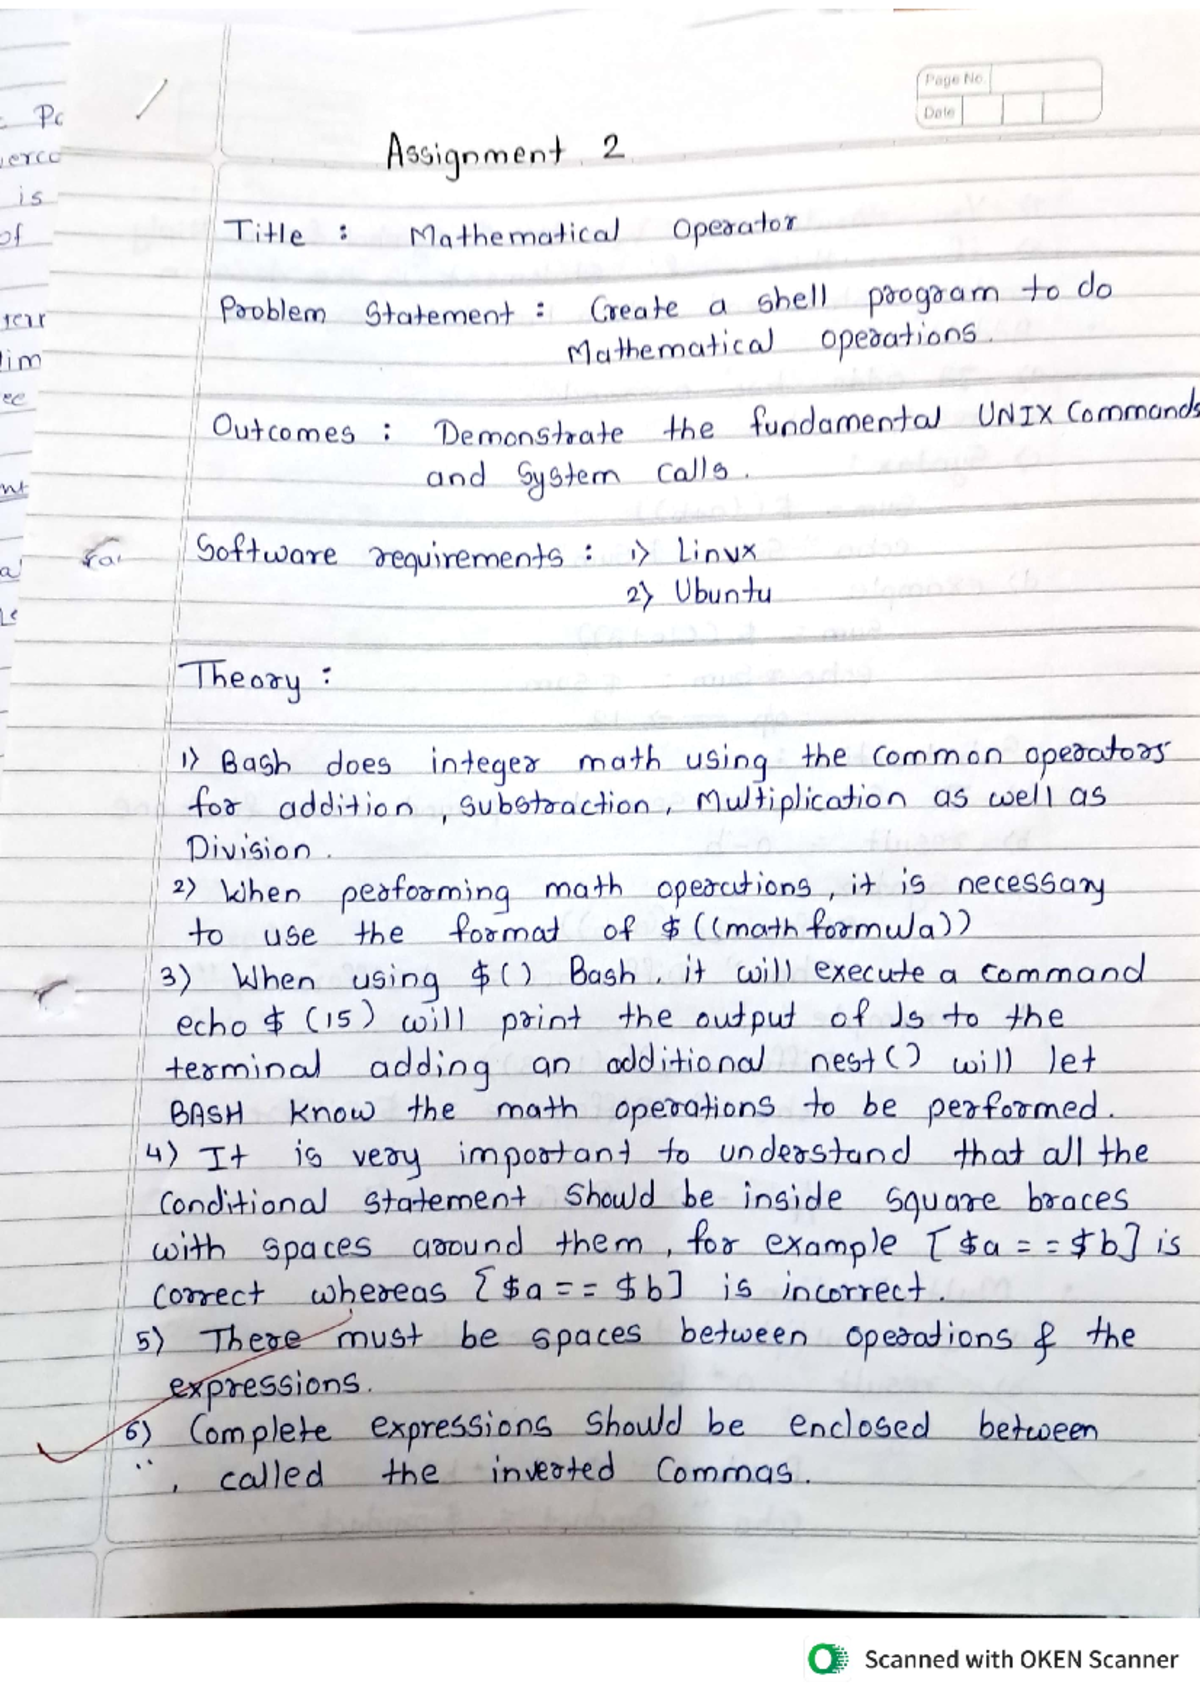 Page No.
Date
Assignment 2
Title : Mathematical Operator
Problem Statement : Create a shell program to do
Mathematical operations.
Outcomes : Demonstrate the fundamental UNIX Commands
and System Calls.
Software requirements : 1) Linux
2) Ubuntu
Theory :
1) Bash does integer math using the common operators
for addition, substraction, Multiplication as well as
Division.
2) When performing math operations, it is necessary
to use the format of $ ((math formula))
3) When using $() Bash, it will execute a command
echo $ (15) will print the output of ls to the
terminal adding an additional nest () will let
BASH know the math operations to be performed.
4) It is very important to understand that all the
Conditional statement should be inside square braces
with spaces around them, for example [ $a = = $b] is
correct whereas [$a == $b] is incorrect.
5) There must be spaces between operations & the
expressions.
6) Complete expressions should be enclosed between
'' , called the inverted Commas.
Scanned with OKEN Scanner